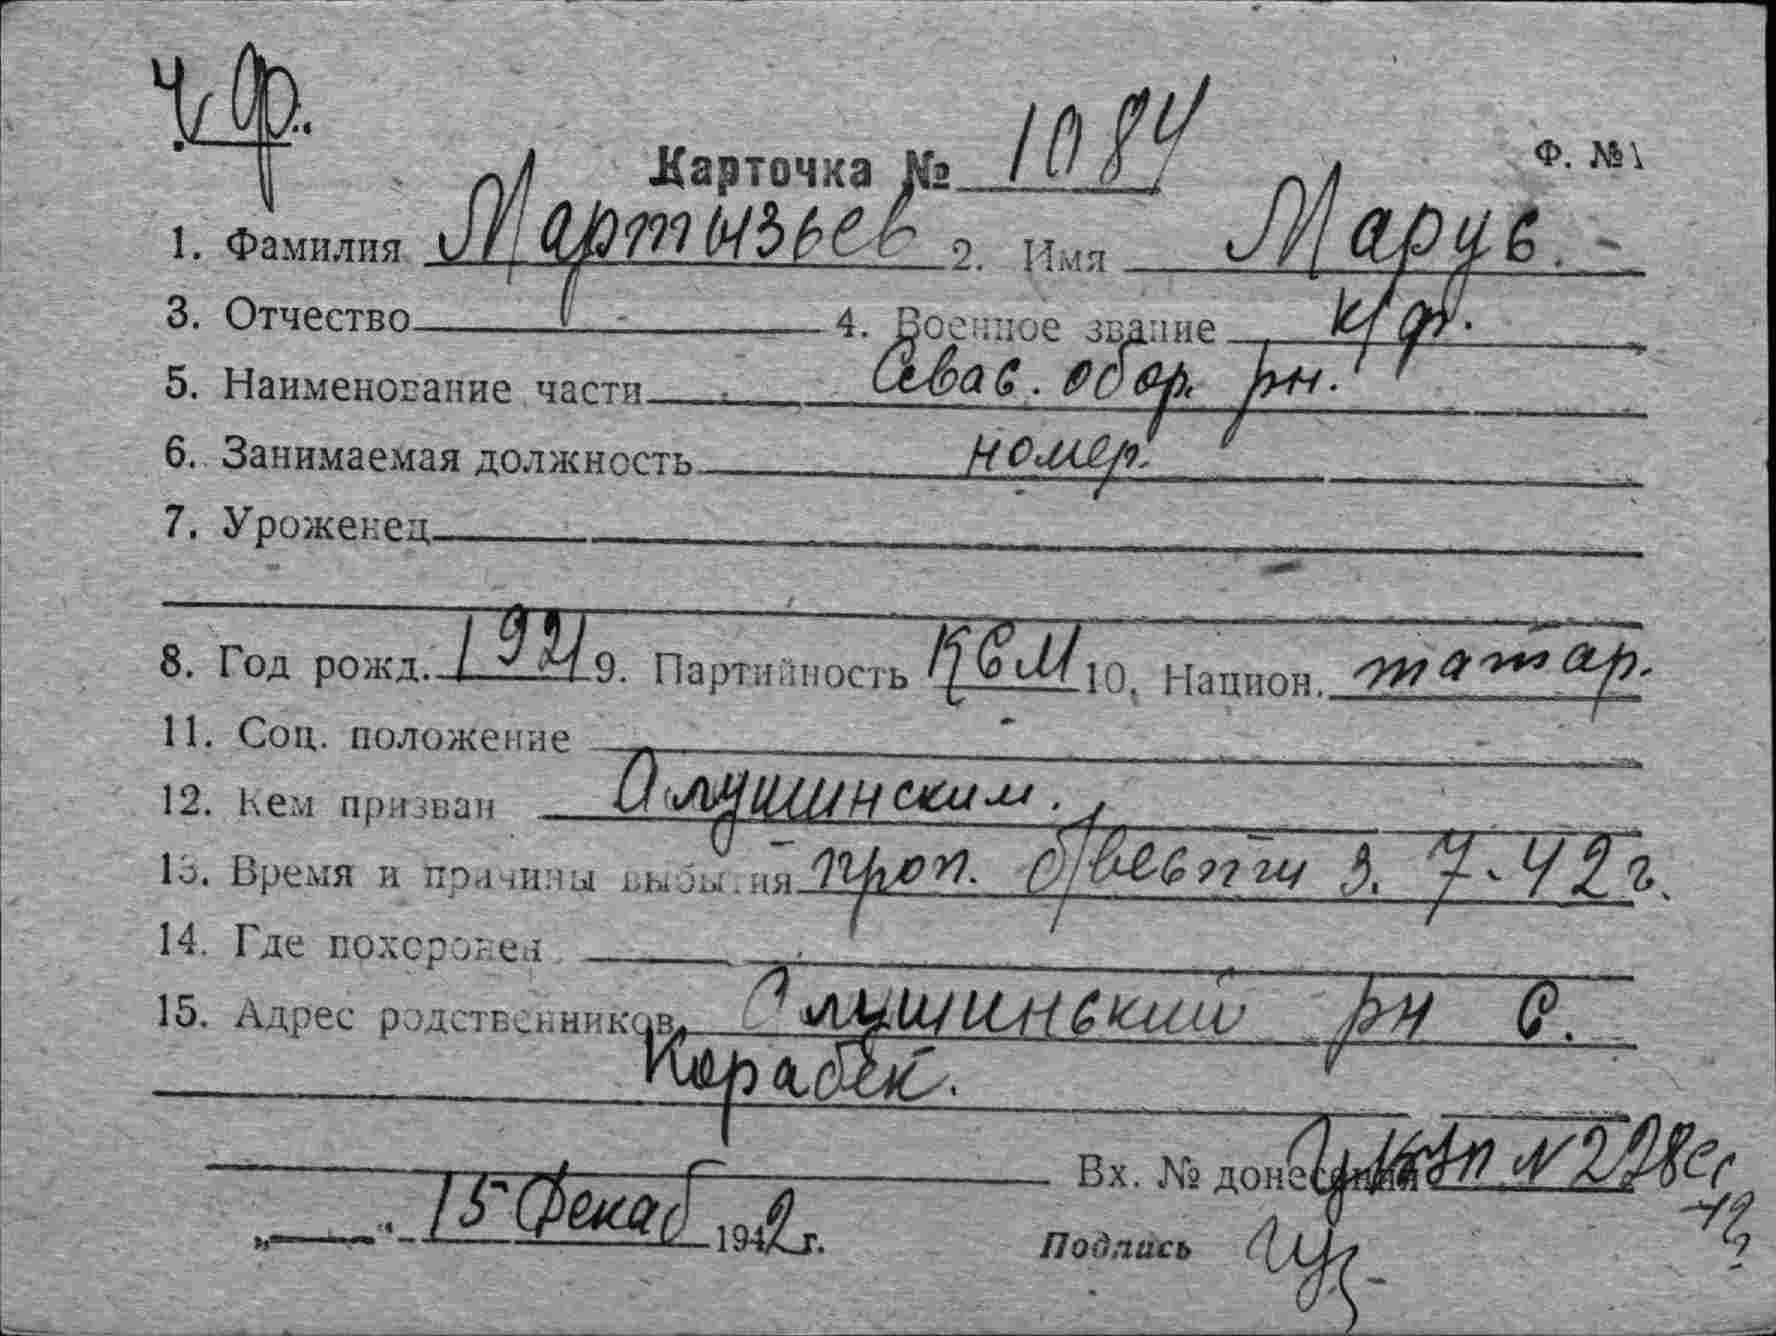 Ч.Ф.
Карточка № 1084 Ф. №1
1. Фамилия Мартызьев 2. Имя Марус.
3. Отчество 4. Военное звание к/ф.
5. Наименование части Севас. обор. рн.
6. Занимаемая должность номер.
7. Уроженец
8. Год рожд. 1921 9. Партийность КСМ 10. Национ. татар.
11. Соц. положение
12. Кем призван Алушинским.
13. Время и причины выбытия проп. б/вести 3.7.42 г.
14. Где похоронен
15. Адрес родственников Алушинский рн с.
Корабек.
Вх. № донесения N 278сс
„ “ 15 Декаб 1942 г. Подпись